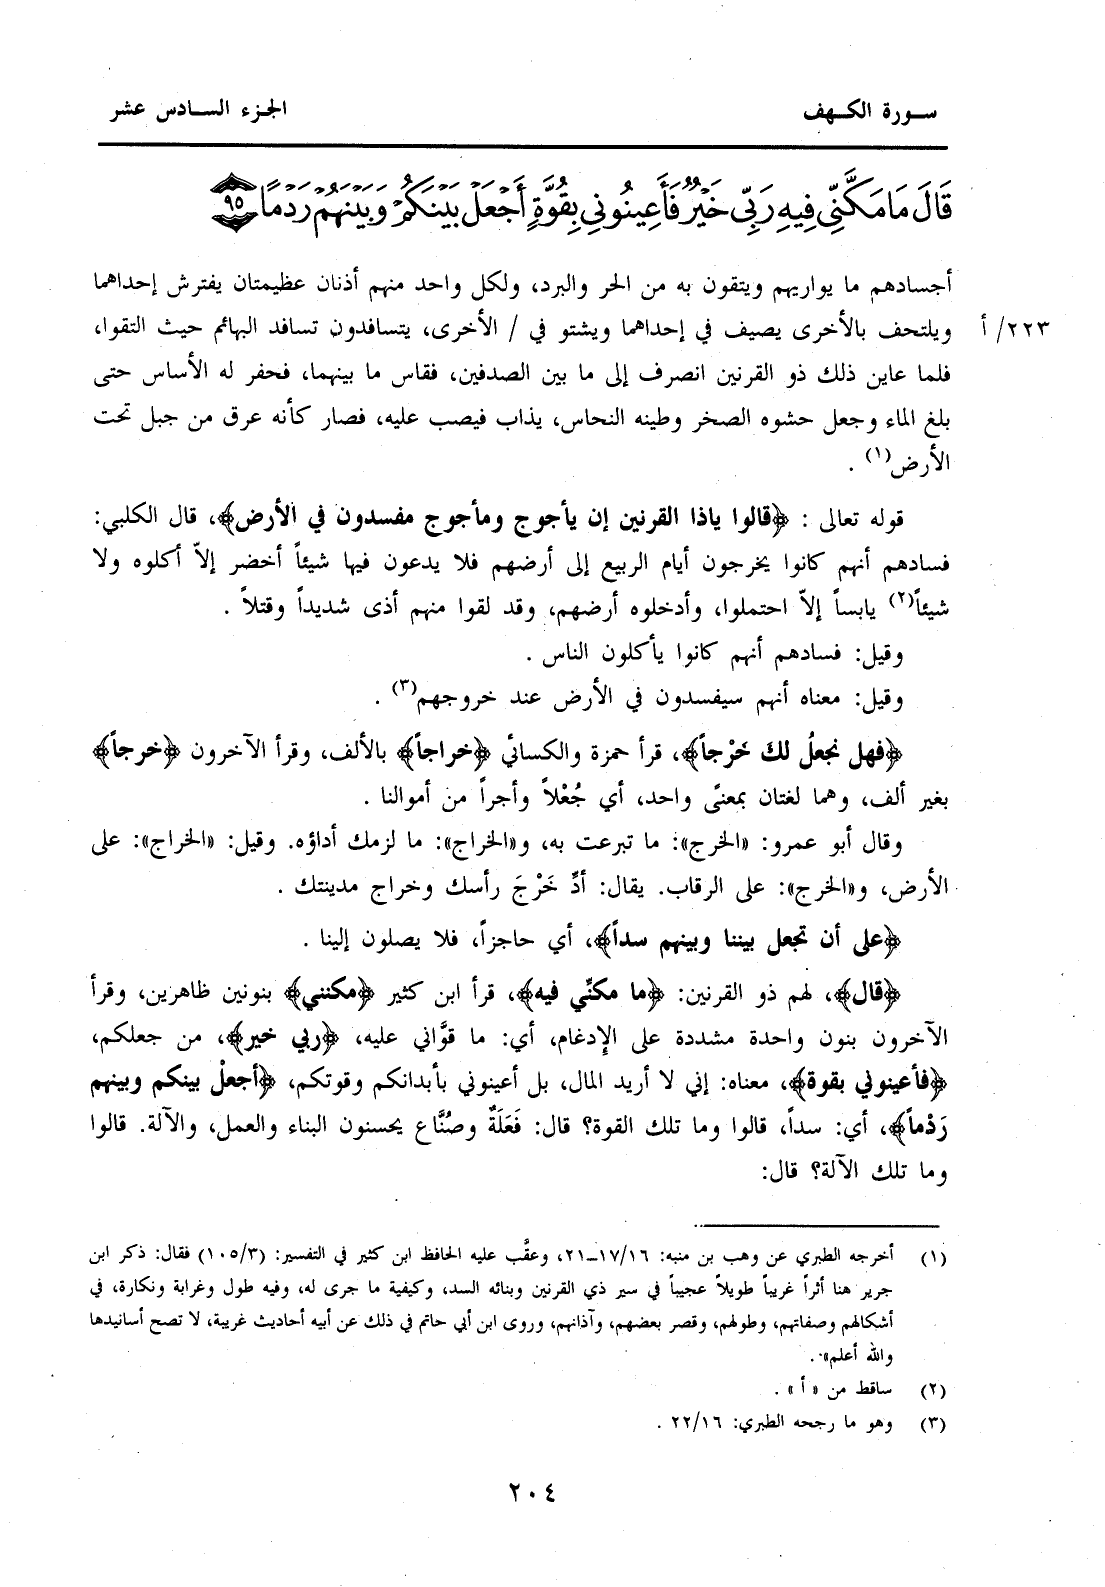 سورة الكهف
الجزء السادس عشر
قَالَ مَا مَكَّنِّي فِيهِ رَبِّي خَيْرٌ فَأَعِينُونِي بِقُوَّةٍ أَجْعَلْ بَيْنَكُمْ وَبَيْنَهُمْ رَدْمًا ٩٥
أجسادهم ما يواريهم ويتقون به من الحر والبرد، ولكل واحد منهم أذنان عظيمتان يفترش إحداهما
٢٢٣/ أ ويلتحف بالأخرى يصيف في إحداهما ويشتو في / الأخرى، يتسافدون تسافد البهائم حيث التقوا،
فلما عاين ذلك ذو القرنين انصرف إلى ما بين الصدفين، فقاس ما بينهما، فحفر له الأساس حتى
بلغ الماء وجعل حشوه الصخر وطينه النحاس، يذاب فيصب عليه، فصار كأنه عرق من جبل تحت
الأرض(١) .
قوله تعالى : ﴿قالوا ياذا القرنين إن يأجوج ومأجوج مفسدون في الأرض﴾، قال الكلبي:
فسادهم أنهم كانوا يخرجون أيام الربيع إلى أرضهم فلا يدعون فيها شيئاً أخضر إلاّ أكلوه ولا
شيئاً(٢) يابساً إلاّ احتملوا، وأدخلوه أرضهم، وقد لقوا منهم أذى شديداً وقتلاً .
وقيل: فسادهم أنهم كانوا يأكلون الناس .
وقيل: معناه أنهم سيفسدون في الأرض عند خروجهم(٣) .
﴿فهل نجعلُ لكَ خَرْجاً﴾، قرأ حمزة والكسائي ﴿خراجاً﴾ بالألف، وقرأ الآخرون ﴿خرجاً﴾
بغير ألف، وهما لغتان بمعنىً واحد، أي جُعْلاً وأجراً من أموالنا .
وقال أبو عمرو: «الخرج»: ما تبرعت به، و«الخراج»: ما لزمك أداؤه. وقيل: «الخراج»: على
الأرض، و«الخرج»: على الرقاب. يقال: أدِّ خَرْجَ رأسك وخراج مدينتك .
﴿على أن تجعل بيننا وبينهم سداً﴾، أي حاجزاً، فلا يصلون إلينا .
﴿قال﴾، لهم ذو القرنين: ﴿ما مكنِّي فيه﴾، قرأ ابن كثير ﴿مكنني﴾ بنونين ظاهرين، وقرأ
الآخرون بنون واحدة مشددة على الإدغام، أي: ما قوَّاني عليه، ﴿ربي خير﴾، من جعلكم،
﴿فأعينوني بقوة﴾، معناه: إني لا أريد المال، بل أعينوني بأبدانكم وقوتكم، ﴿أجعلْ بينكم وبينهم
رَدْماً﴾، أي: سداً، قالوا وما تلك القوة؟ قال: فَعَلَةٌ وصُنَّاع يحسنون البناء والعمل، والآلة. قالوا
وما تلك الآلة؟ قال:
(١) أخرجه الطبري عن وهب بن منبه: ١٧/١٦ــ٢١، وعقَّب عليه الحافظ ابن كثير في التفسير: (١٠٥/٣) فقال: ذكر ابن
جرير هنا أثراً غريباً طويلاً عجيباً في سير ذي القرنين وبنائه السد، وكيفية ما جرى له، وفيه طول وغرابة ونكارة، في
أشكالهم وصفاتهم، وطولهم، وقصر بعضهم، وآذانهم، وروى ابن أبي حاتم في ذلك عن أبيه أحاديث غريبة، لا تصح أسانيدها
والله أعلم» .
(٢) ساقط من « أ » .
(٣) وهو ما رجحه الطبري: ٢٢/١٦ .
٢٠٤